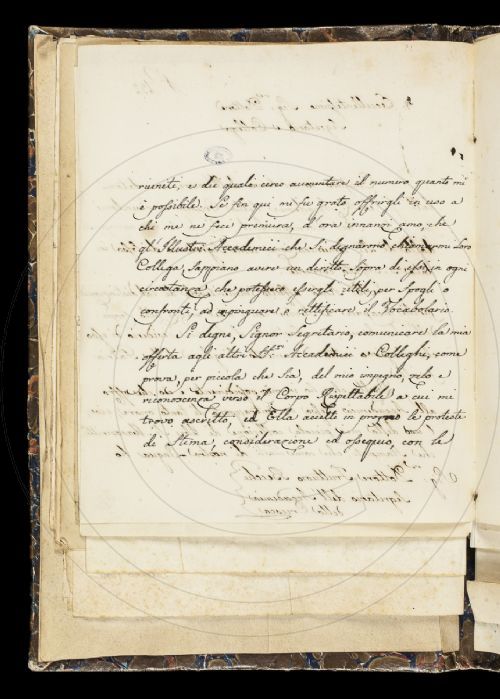 riunite, e di quali cerco aumentare il numero quanto mi
è possibile. Se fin qui mi fu grato offrirgli in uso a
chi me ne fece premura, d'ora innanzi amo, che
gl'Illustri Accademici che Si degnarono chiamarmi Loro
Collega Sappiano avere un diritto Sopra di essi in ogni
circostanza che potessero essergli utili, per Spogli o
confronti, ad impinguare o rettificare il Vocabolario.
Si degni, Signor Segretario, comunicare la mia
offerta agli altri SS.ri Accademici e Colleghi, come
prova, per piccola che Sia, del mio impegno, zelo e
riconoscenza verso il Corpo Rispettabile a cui mi
trovo ascritto, ed Ella accetti in proprio le proteste
di Stima, considerazione ed ossequio, con le